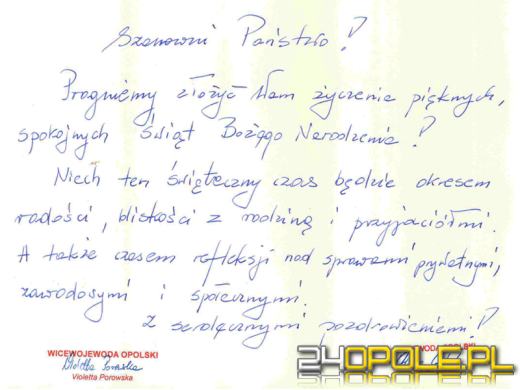 Szanowni Państwo!
Pragniemy złożyć Wam życzenia pięknych,
spokojnych Świąt Bożego Narodzenia!
Niech ten świąteczny czas będzie okresem
radości, bliskości z rodziną i przyjaciółmi.
A także czasem refleksji nad sprawami prywatnymi,
zawodowymi i społecznymi.
Z serdecznymi pozdrowieniami!
WICEWOJEWODA OPOLSKI
Violetta Porowska
Violetta Porowska
WODA OPOLSKI
24OPOLE.PL